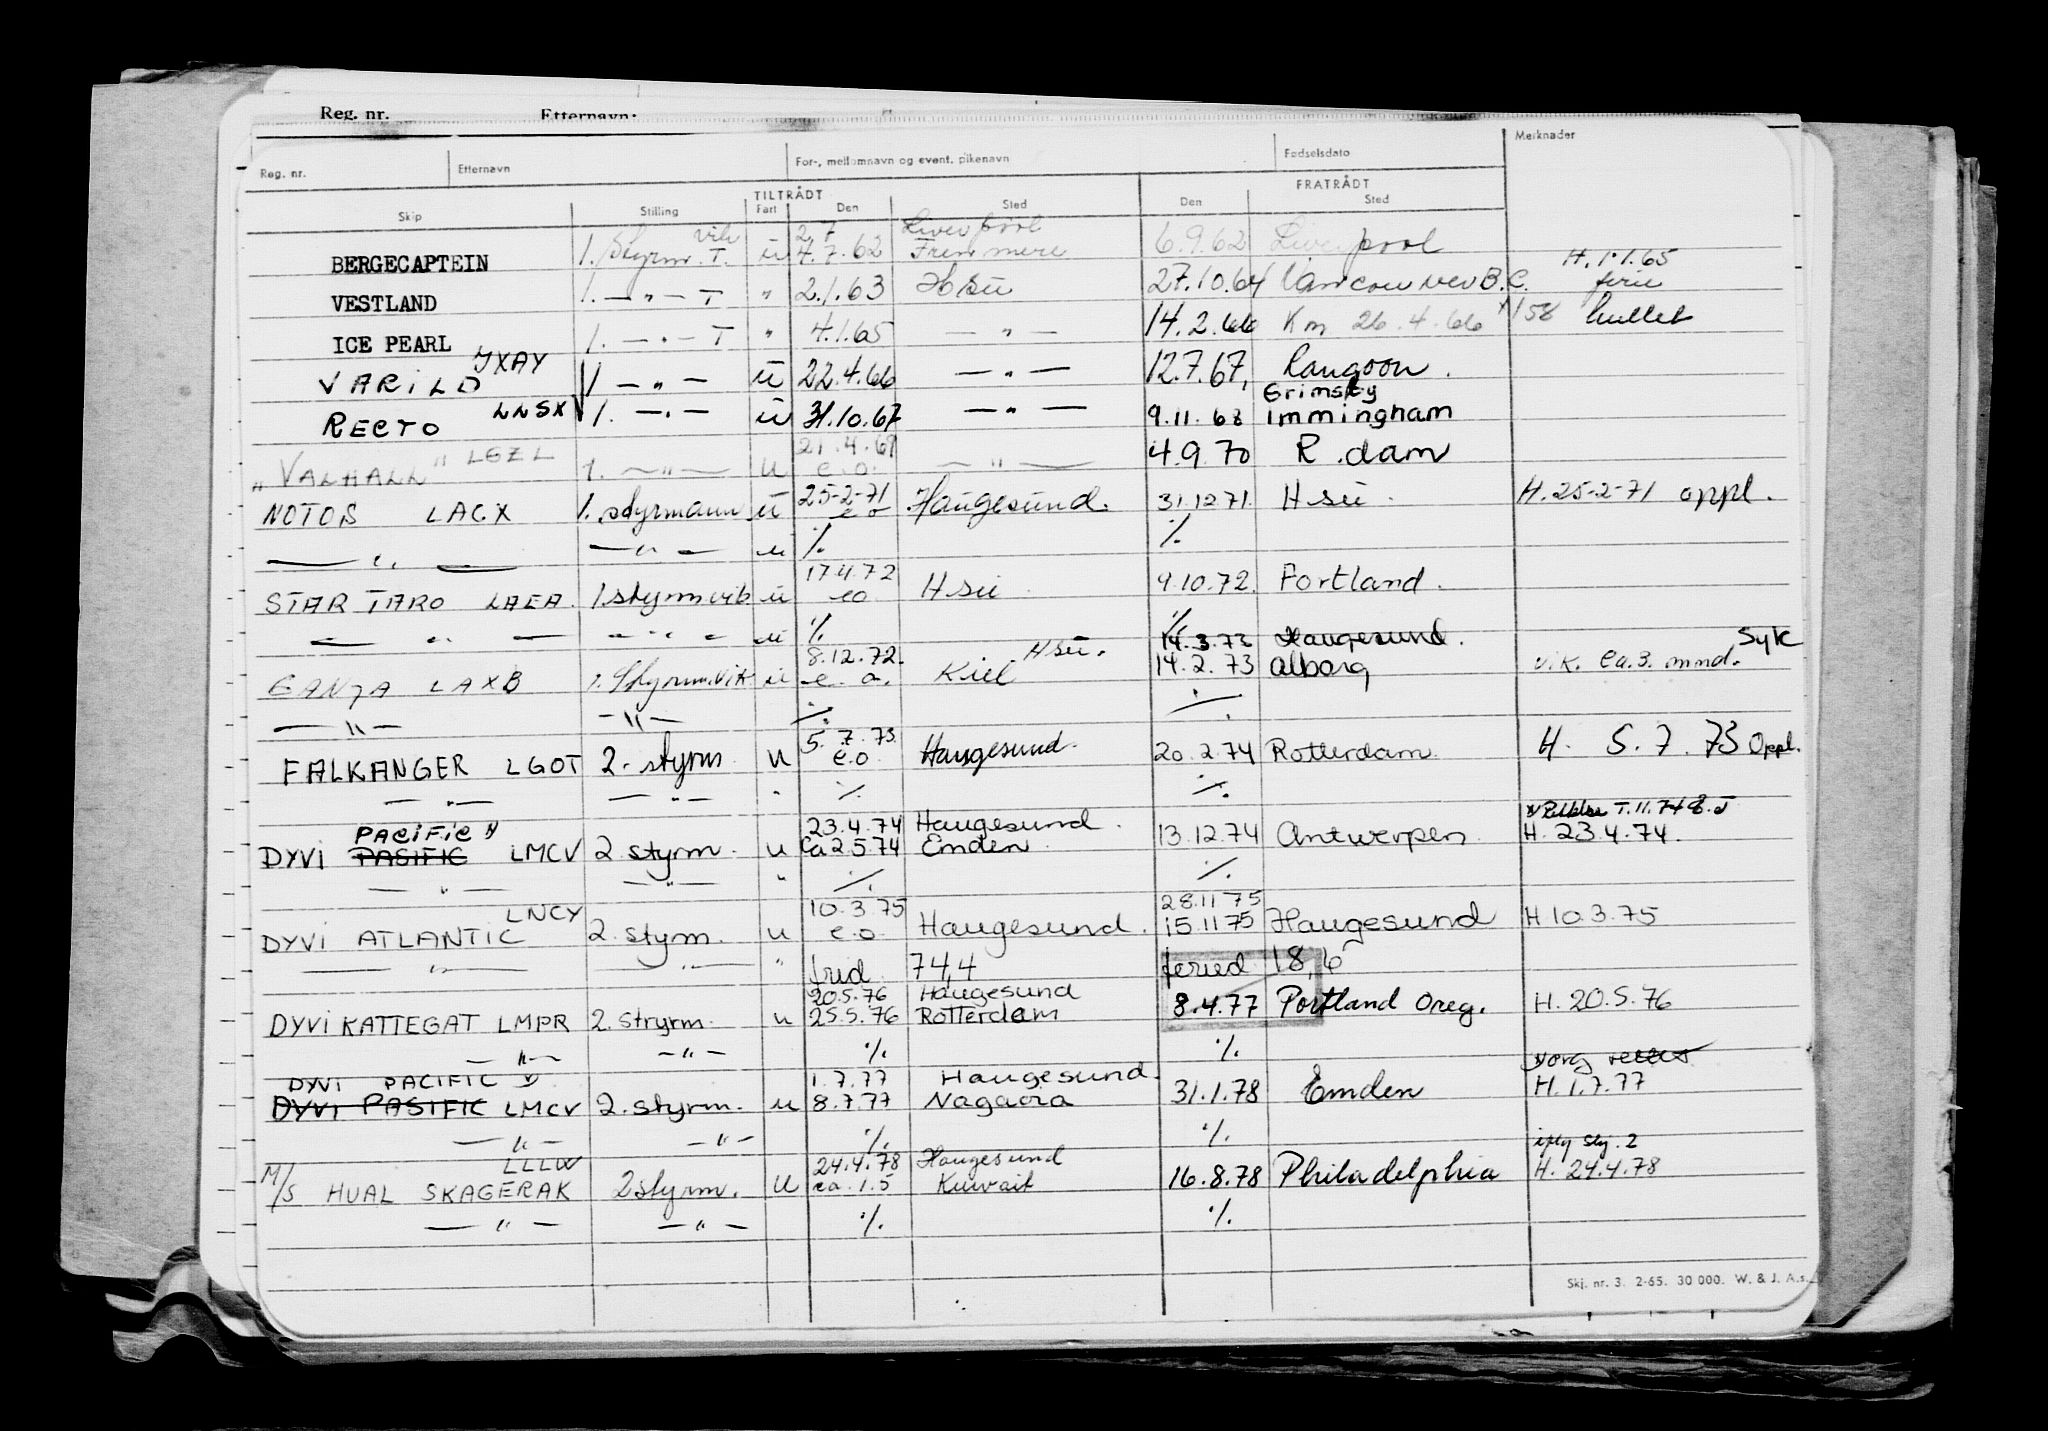 Reg. nr. Etternavn:
Reg. nr. Etternavn For-, mellomnavn og event. pikenavn Fødselsdato Merknader
TILTRÅDT FRATRÅDT
Skip Stilling Fart Den Sted Den Sted
vik 2.7 Liverpool
BERGECAPTEIN 1. Styrm. T. u 4.7.62 6.9.62 Liverpool
H. 1.1.65
VESTLAND 1. — " — T " 2.1.63 Hsu 27.10.64 Vancouver B.C. ferie
ICE PEARL 1. — " — T " 4.1.65 — " — 14.2.66 Km 26.4.66 158 hullet
VARILD JXAY — " — u 22.4.66 — " — 12.7.67, Rangoon.
Grimsby
RECTO LNSX 1. — " — u 31.10.67 — " — 9.11.68 Immingham
21.4.69
"VALHALL" LGZL 1. — " — u e.o. — " — 4.9.70 R.dam
25-2-71
NOTOS LACX 1. styrmann u e o Haugesund. 31.12.71. Hsu. H. 25-2-71 oppl.
— " — — " — u % %
17.4.72
STAR TARO LAEA. 1. styrm vik u eo Hsu 9.10.72. Portland.
— " — — " — u % %
8.12.72. Hsu. 14.3.73 Haugesund. Syk
GANJA LAXB 1. Styrm. vik u e.o. Kiel 14.2.73 Alborg vik. ca. 3. mnd.
— " — — " — % %
5.7.73
FALKANGER LGOT 2. styrm u e.o Haugesund. 20.2.74 Rotterdam. H. 5.7.73 Oppl.
— " — — " — " % %
PACIFIC 23.4.74 Haugesund. T.11.74
DYVI PASIFIC LMCV 2 styrm. u Ca 2.5.74 Emden 13.12.74 Antwerpen. H. 23.4.74.
— " — — " — " % %
LNCY 10.3.75 28.11.75
DYVI ATLANTIC 2. styrm. u e.o. Haugesund. 15.11.75 Haugesund H 10.3.75
— " — — " — " frid 74,4 feried 18,6
20.5.76 Haugesund
DYVI KATTEGAT LMPR 2. stryrm. u 25.5.76 Rotterdam 8.4.77 Portland Oreg. H. 20.5.76
— " — — " — % %
DYVI PACIFIC 1.7.77 Haugesund.
DYVI PASIFIC LMCV 2. styrm. u 8.7.77 Nagaora 31.1.78 Emden H. 1.7.77
— " — — " — % %
LLLW 24.4.78 Haugesund
M/S HUAL SKAGERAK 2 styrm. u ca. 1.5 Kuwait 16.8.78 Philadelphia H. 24.4.78
— " — — " — % %
Skj. nr. 3. 2-65. 30 000. W. & J. A.s.